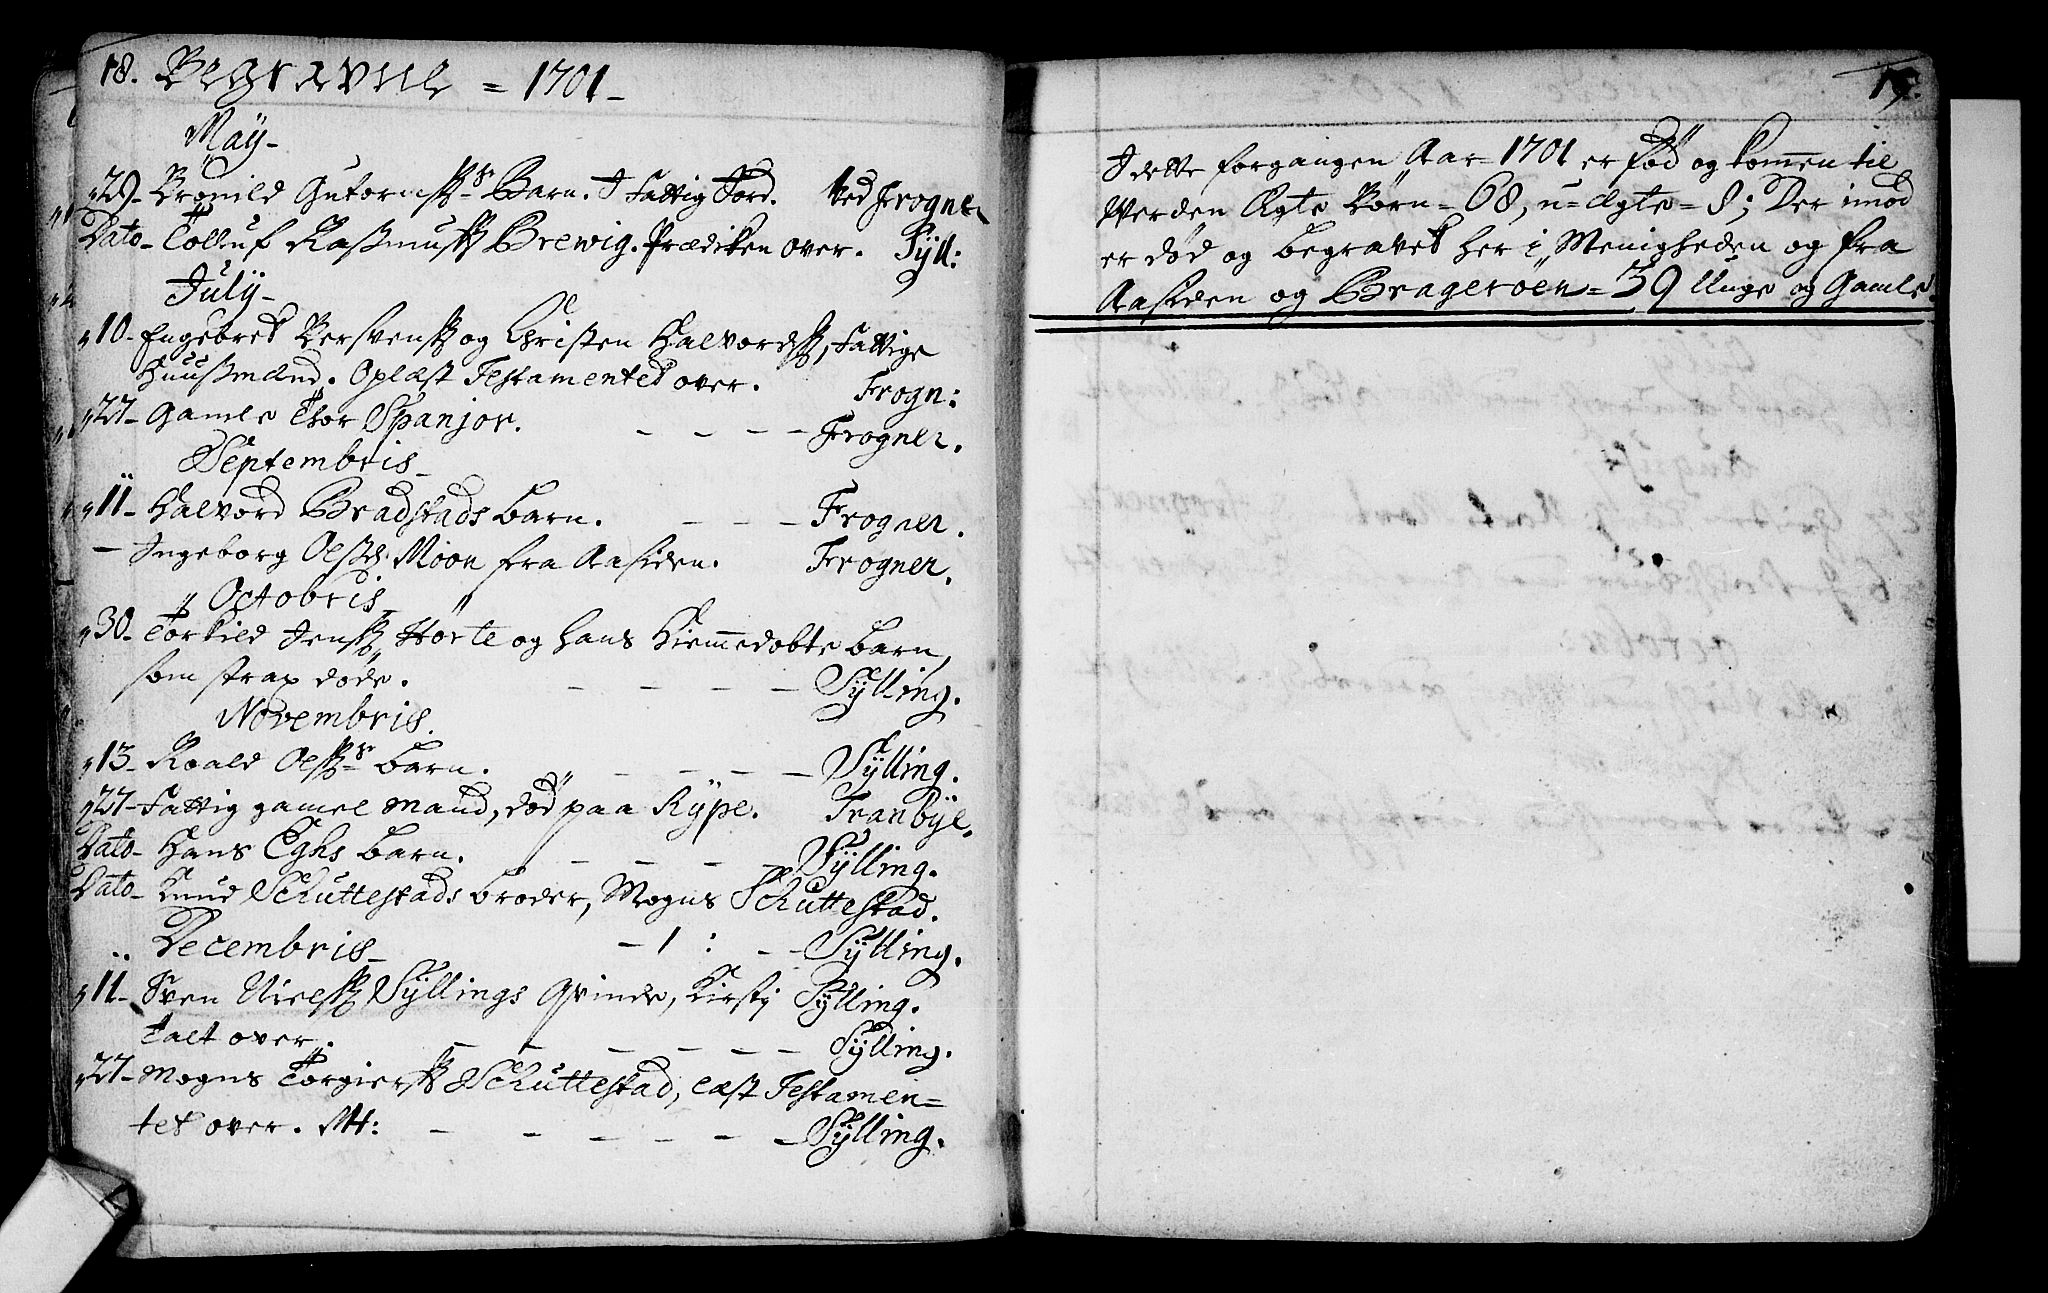 18. Begravne = 1701 -
May -
29 - Bronild Gutormsß Barn. I Fattig Jord. Ved Frogner
Dato - Tolluf Raßmusß Brewig. Prædiken over. Syll:
July -
10 - Engebret Bersvensß og Christen Halvordsß, Fattige
Huußmænd. Oplæst Testamentet over. Frogn:
27 - Gamle Thor Spanjor. - - - - Frogner.
Septembris -
11 - Halvord Bradstads barn. - - - Frogner.
- Ingeborg Olsd. Möön fra Aasiden. Frogner.
Octobris
30 - Torkild Jensß Hörte og hans Hiemmedøbte barn,
som strax døde. - - - - Sylling.
Novembris.
13 - Roald Olsß barn. - - - - Sylling.
27 - Fattig gamel mand, död paa Rype. Tranbye.
Dato - Hans Eghs barn. - - - - Sylling.
Dato - Knud Schuttestads broder, Mogns Schuttestad.
Decembris - - 1 : - - Sylling.
11 - Sven Nielsß Syllings Qvinde, Kirsti Sylling.
talt over. - - - - - - Sylling.
27 - Mogns Torgiersß Schuttestad, læst Testamen=
tet over. - - - - - - Sylling.
19.
I dette forgangen Aar = 1701 er fød og kommen til
Verden Ægte Børn = 68, u=ægte = 8; Der imod
er død og begravet her i Menigheden og fra
Aasiden og Brageröen = 39 Unge og Gamle.